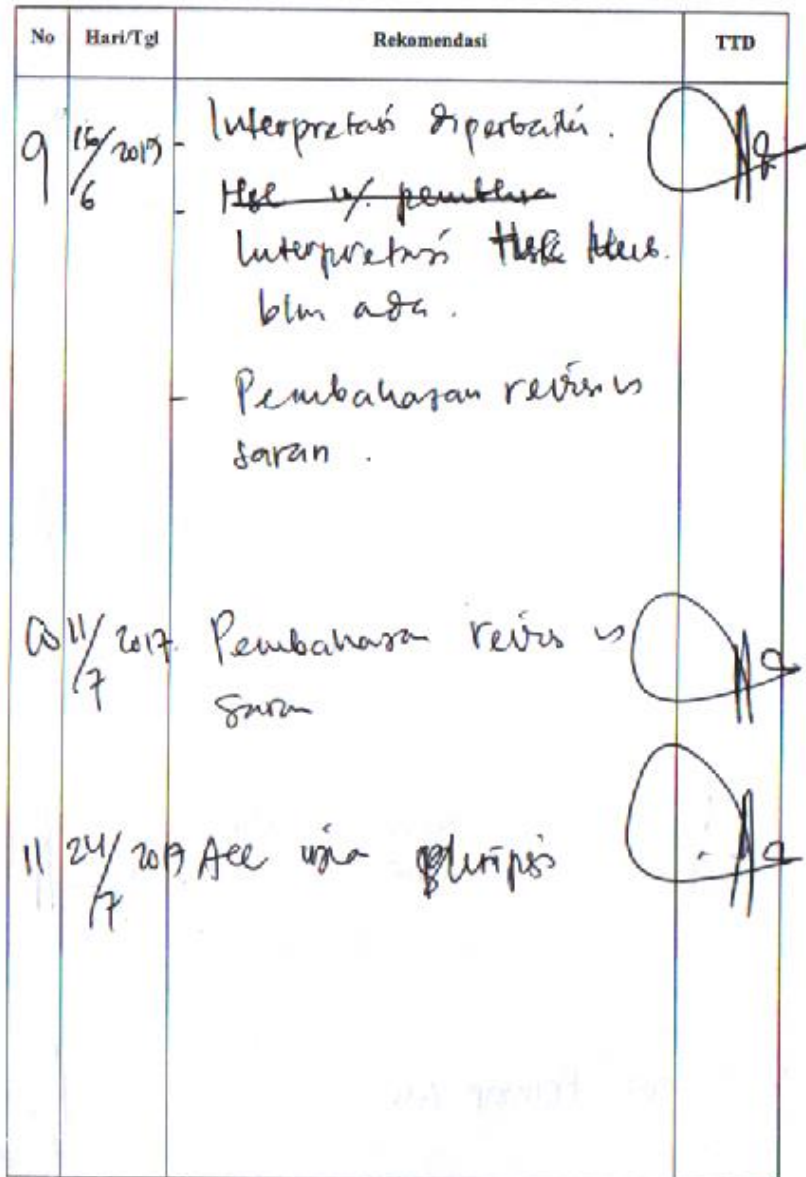 No Hari/Tgl Rekomendasi TTD
9 16/6 2017 - Interpretasi diperbaiki.
-
Interpretasi
blm ada.
- Pembahasan revisi
saran.
11/7 2017. Pembahasan revisi
saran
11 24/7 2017 Acc